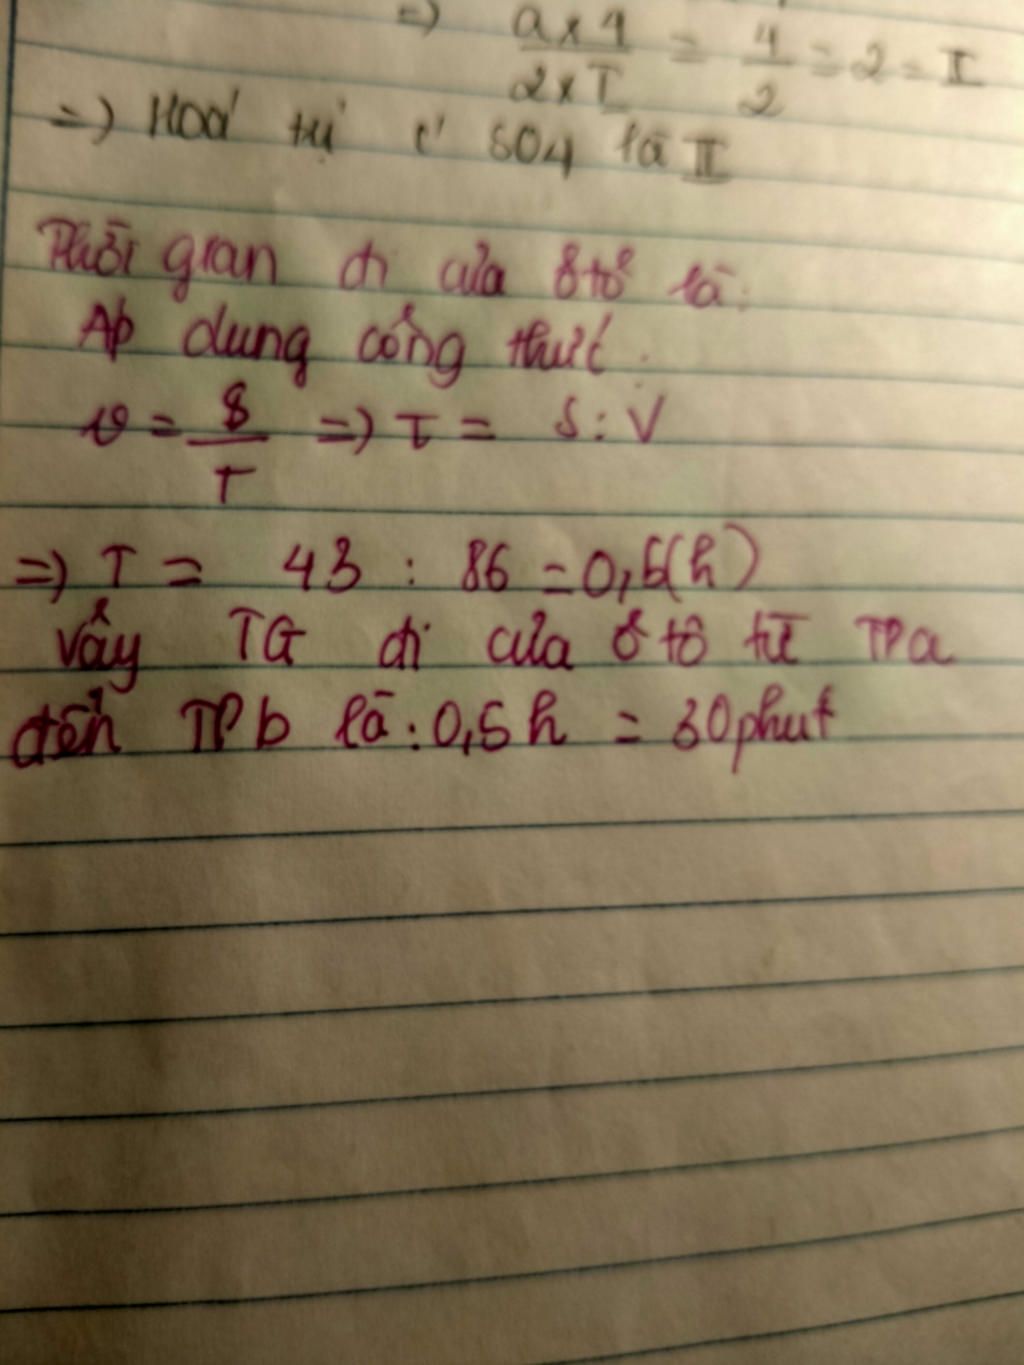 =) a x 4 / 2 x I = 4 / 2 = 2 = II
=) Hoá trị SO4 là II
Thời gian đi của ô tô là:
Áp dụng công thức:
v = S / T =) T = S : V
=) T = 43 : 86 = 0,5(h)
Vậy TG đi của ô tô từ TP a
đến TP b là : 0,5h = 30 phút